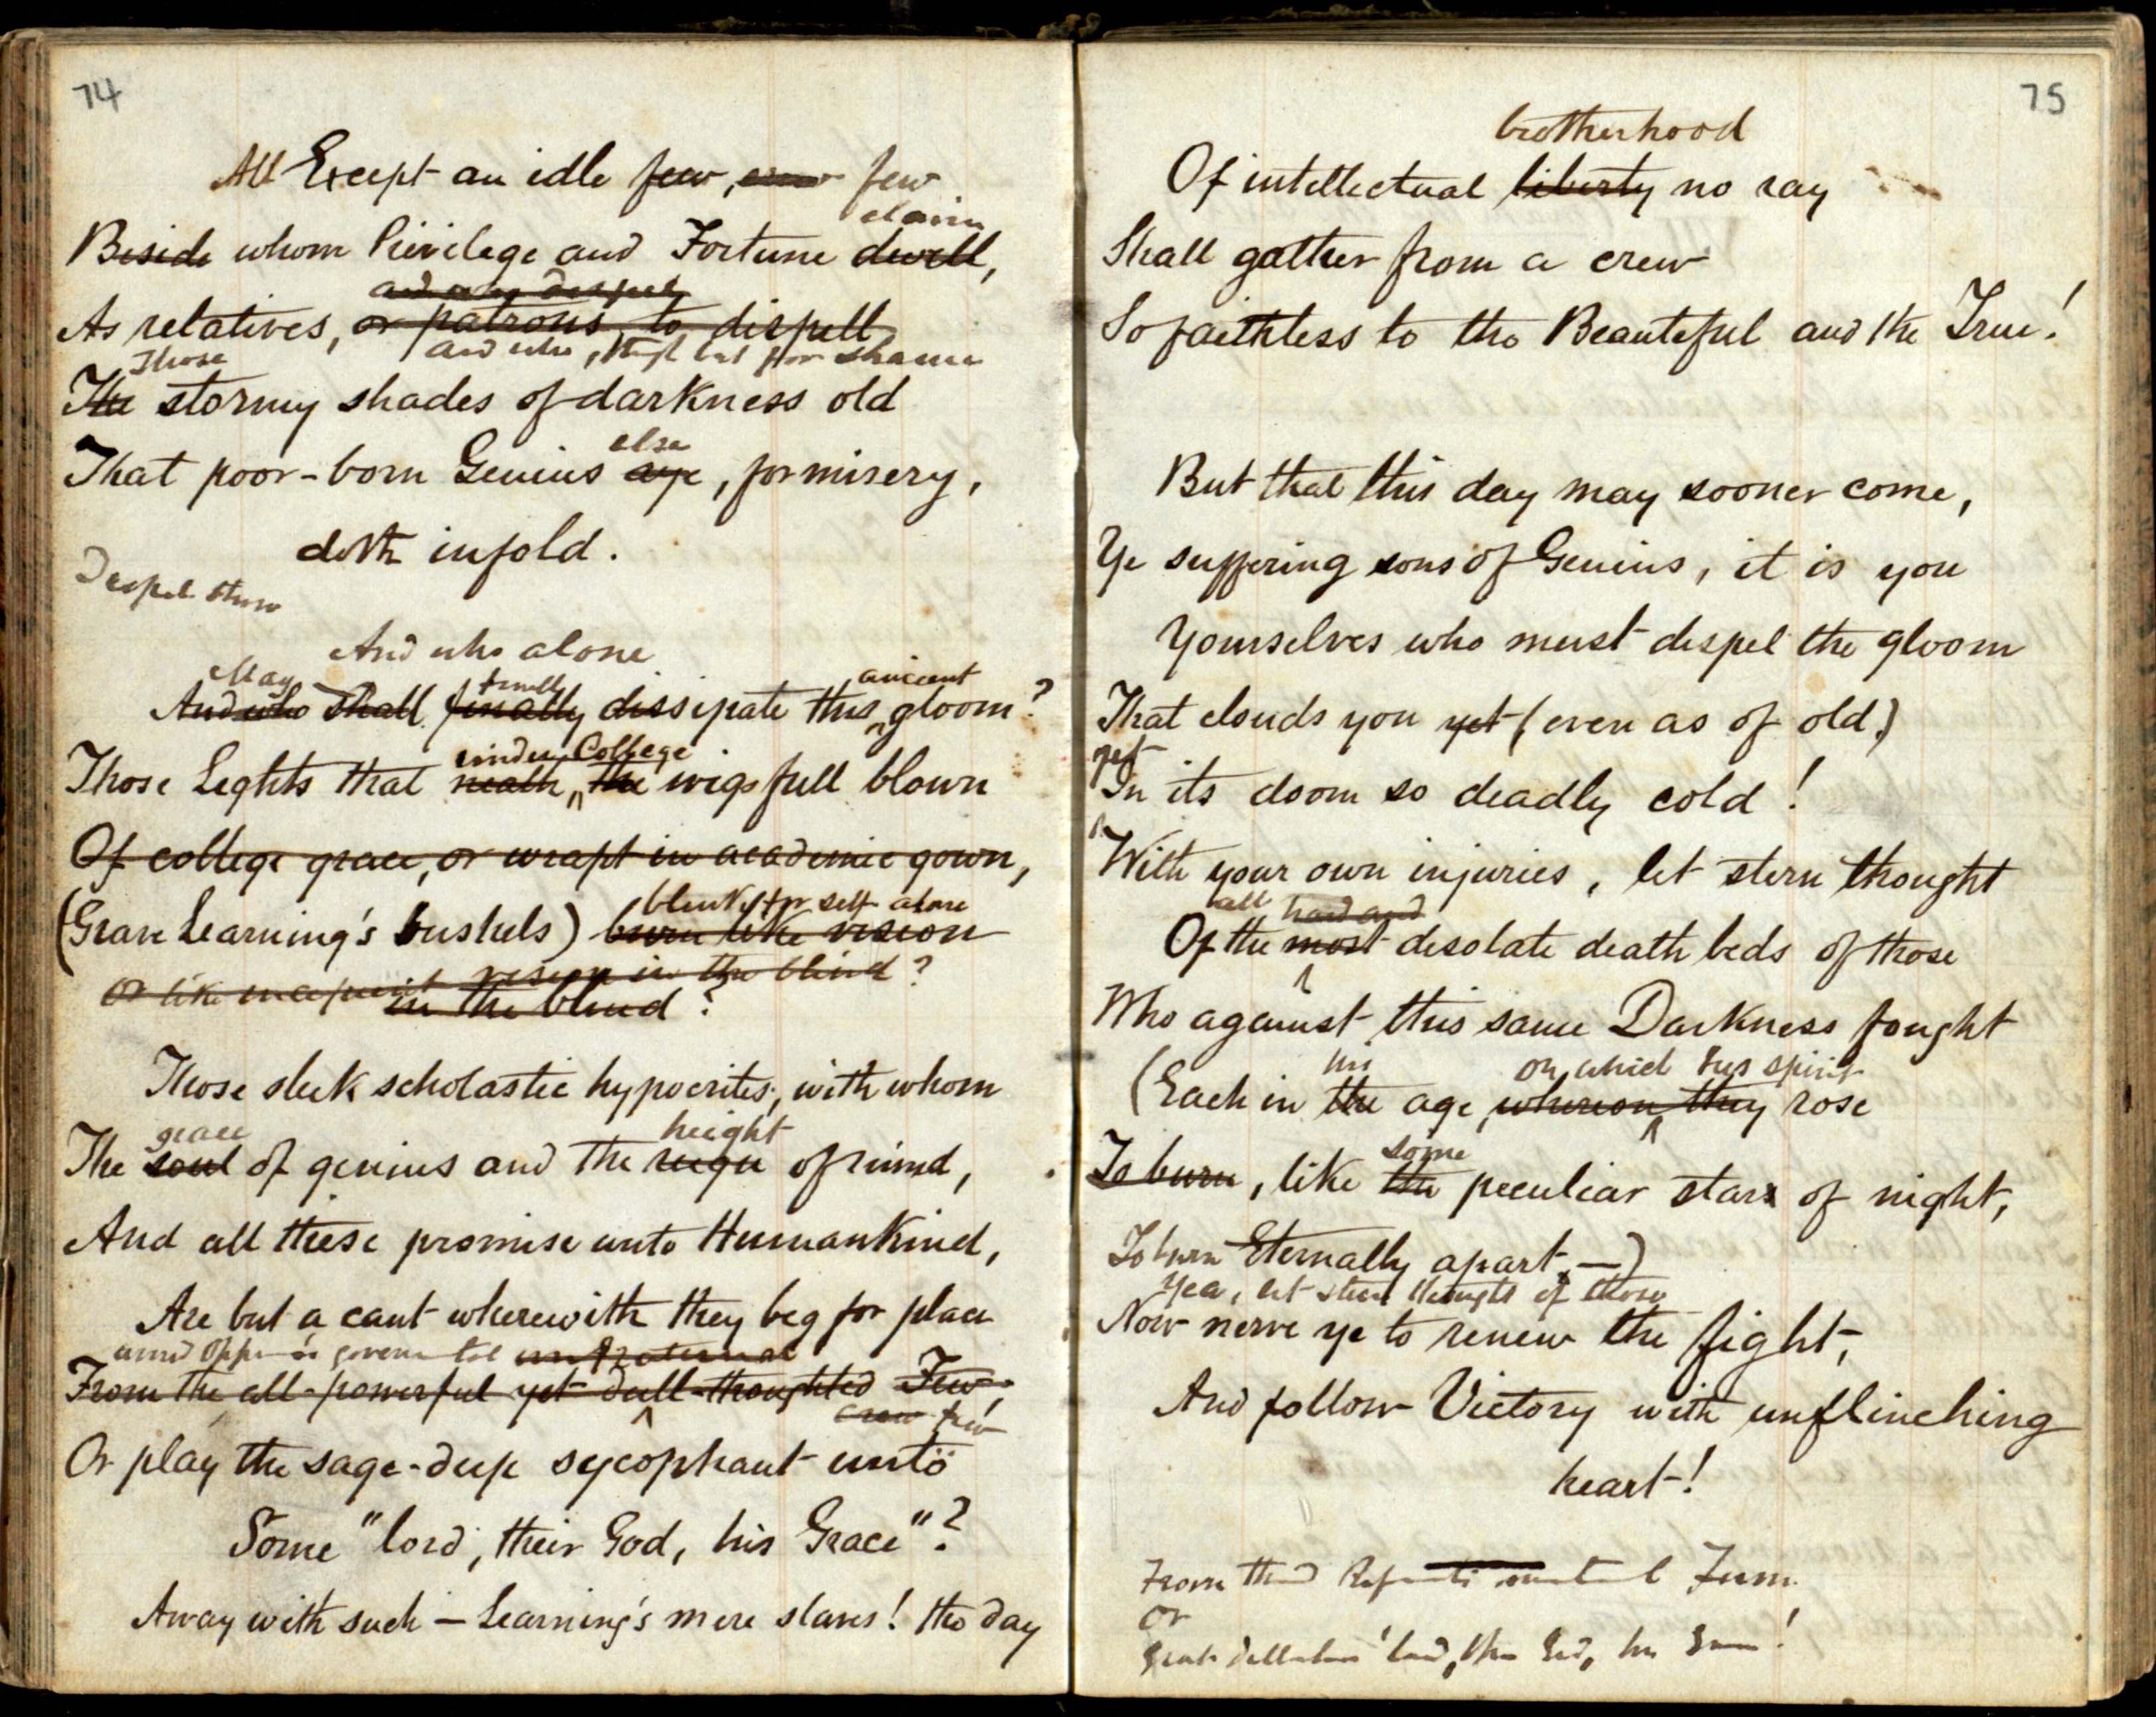 74
All Except an idle few, crew few
claim
Beside whom Privilege and Fortune dwell,
and may dispel
As relatives, or patrons, to dispell
Those and who, but for shame
The stormy shades of darkness old
else
That poor-born Genius aye, for misery,
doth infold.
Dispel them
And who alone
May finally ancient
And who shall finally dissipate this gloom?
under College
Those Lights that neath the wigs full blown
Of college grace, or wrapt in academic gown,
blink for self alone
(Grave Learning's bushels) burn like vision
Or like vision in the blind?
in the blind?
Those sleek scholastic hypocrites, with whom
grace height
The soul of genius and the reign of mind,
And all these promise unto Humankind,
Are but a cant wherewith they beg for place
From the all-powerful yet dull-thoughted Few,
crew few
Or play the sage-deep sycophant unto
Some "lord, their God, his Grace"?
Away with such — Learning's mere slaves! the day
75
brotherhood
Of intellectual liberty no ray
Shall gather from a crew
So faithless to the Beautiful and the True!
But that this day may sooner come,
Ye suffering sons of Genius, it is you
Yourselves who must dispel the gloom
That clouds you yet (even as of old)
yet
In its doom so deadly cold!
With your own injuries, let stern thought
all hard and
Of the most desolate death beds of those
Who against this same Darkness fought
his on which his spirit
(Each in the age, whereon they rose
some
To burn, like the peculiar stars of night,
To burn Eternally apart, —)
Yea, let stern thoughts of those
Now nerve ye to renew the fight,
And follow Victory with unflinching
heart!
From
Or
lord, their God, his